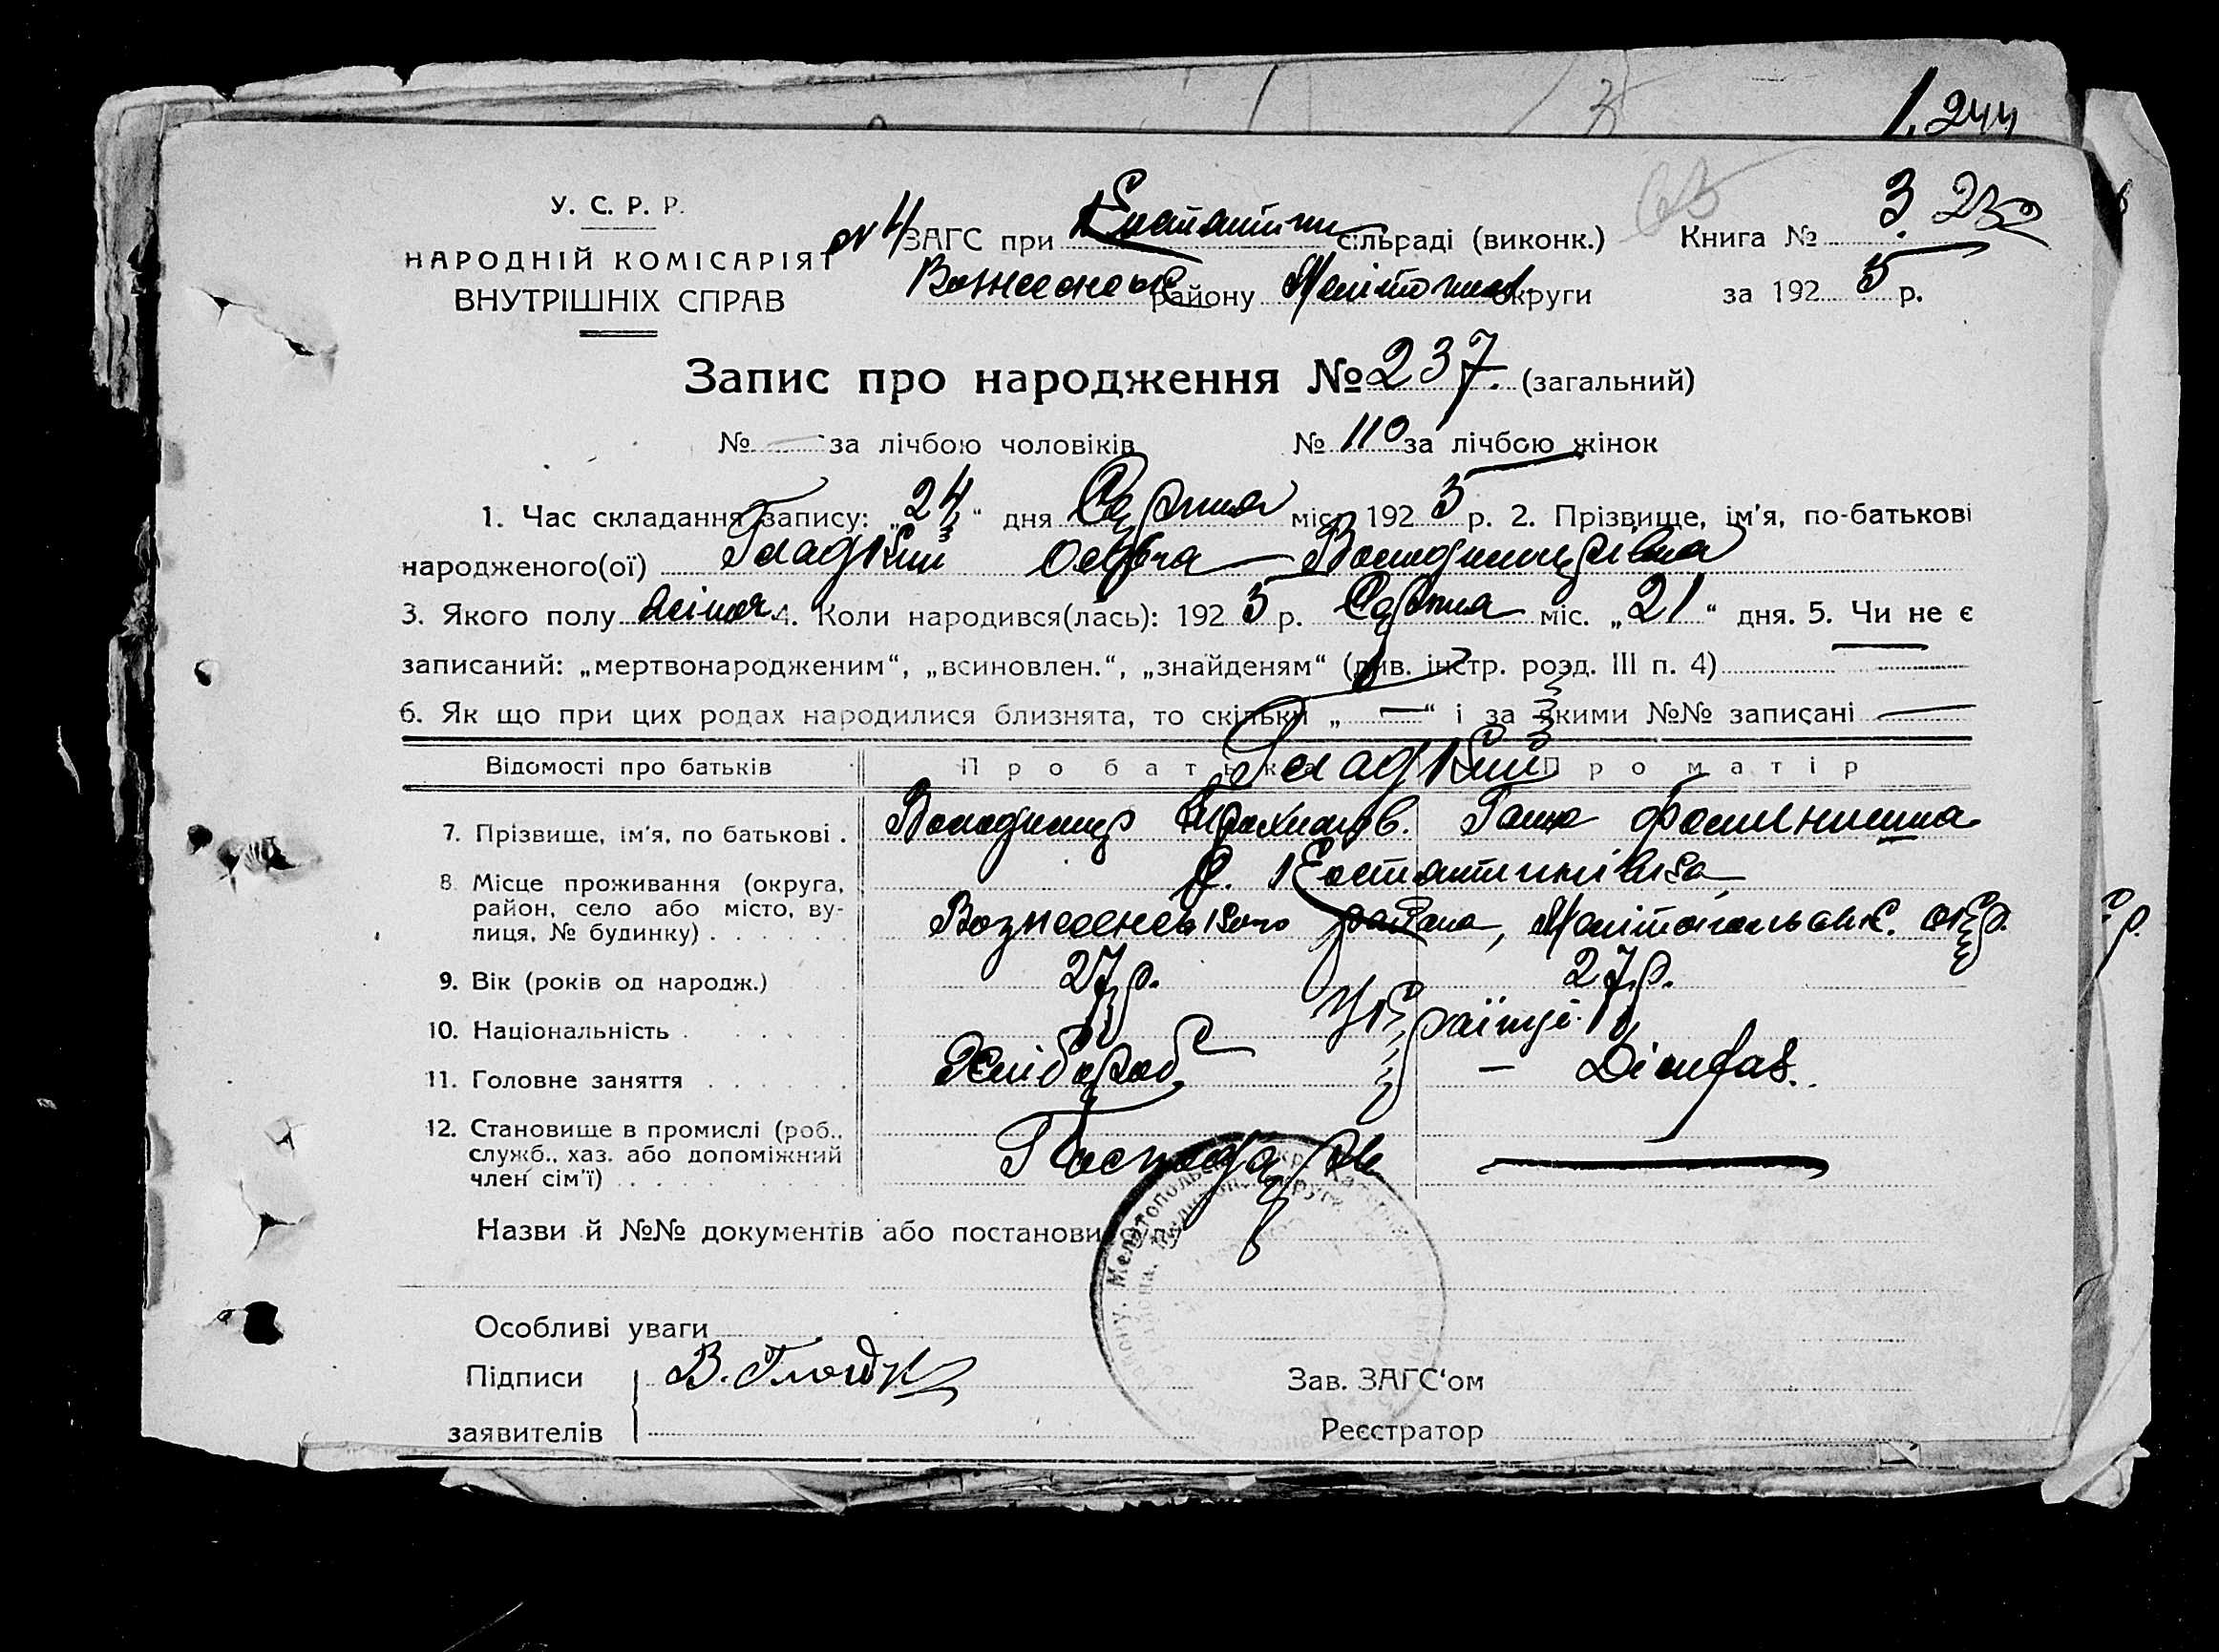 1. 244
65
У. С. Р. Р.
НАРОДНІЙ КОМІСАРІЯТ
ВНУТРІШНІХ СПРАВ
№ 4 ЗАГС при Костантин сільраді (виконк.) Книга № 3. 232
Вознесенськ району Мелітопил. округи за 192 5 р.
Запис про народження № 237. (загальний)
№ — за лічбою чоловіків № 110 за лічбою жінок
1. Час складання запису: „24“ дня Серпня міс. 192 5 р. 2. Прізвище, ім'я, по-батькові
народженого(ої) Гладкий Володимирівна
3. Якого полу жіноч 4. Коли народився(лась): 192 5 р. Серпня міс. „21“ дня. 5. Чи не є
записаний: „мертвонародженим“, „всиновлен.“, „знайденям“ (див. інстр. розд. III п. 4) —
6. Як що при цих родах народилися близнята, то скільки „—“ і за якими №№ записані —
Відомості про батьків Про батька Про матір
Гладкий
7. Прізвище, ім'я, по батькові . Володимир Ганна
8. Місце проживання (округа, с. Костантинівка
район, село або місто, ву- Вознесенського района, Мелітопольськ. окр.
лиця, № будинку) . . . . . .
9. Вік (років од народж.) 27 р. 27 р.
10. Національність . . . . . . Українці
11. Головне заняття . . . . . . Хлібороб —
12. Становище в промислі (роб., Господар —
служб., хаз. або допоміжний
член сім'ї) . . . . . . . . .
Назви й №№ документів або постанови
Особливі уваги
Підписи В. Гладк
заявителів
Зав. ЗАГС'ом
Реєстратор